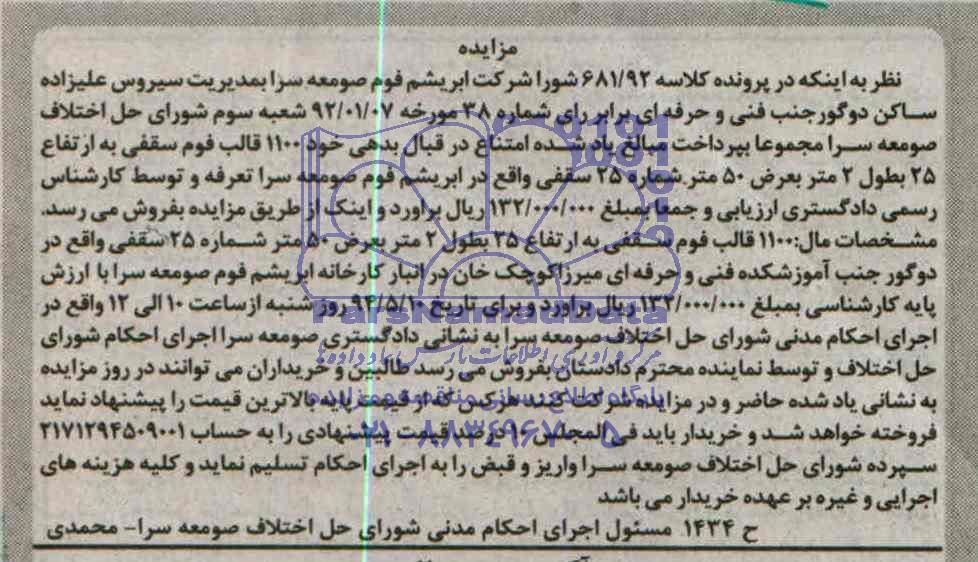 مزایده
نظر به اینکه در پرونده کلاسه ۶۸۱/۹۲ شورا شرکت ابریشم فوم صومعه سرا بمدیریت سیروس علیزاده
ساکن دوگور جنب فنی و حرفه ای برابر رای شماره ۳۸ مورخه ۹۲/۰۱/۰۷ شعبه سوم شورای حل اختلاف
صومعه سرا مجموعا بپرداخت مبالغ یاد شده امتناع در قبال بدهی خود ۱۱۰۰ قالب فوم سقفی به ارتفاع
۲۵ بطول ۲ متر بعرض ۵۰ متر شماره ۲۵ سقفی واقع در ابریشم فوم صومعه سرا تعرفه و توسط کارشناس
رسمی دادگستری ارزیابی و جمعا بمبلغ ۱۳۲/۰۰۰/۰۰۰ ریال براورد و اینک از طریق مزایده بفروش می رسد.
مشخصات مال: ۱۱۰۰ قالب فوم سقفی به ارتفاع ۲۵ بطول ۲ متر بعرض ۵۰ متر شماره ۲۵ سقفی واقع در
دوگور جنب آموزشکده فنی و حرفه ای میرزا کوچک خان در انبار کارخانه ابریشم فوم صومعه سرا با ارزش
پایه کارشناسی بمبلغ ۱۳۲/۰۰۰/۰۰۰ ریال براورد و برای تاریخ ۹۴/۵/۱۰ روز شنبه از ساعت ۱۰ الی ۱۲ واقع در
اجرای احکام مدنی شورای حل اختلاف صومعه سرا به نشانی دادگستری صومعه سرا اجرای احکام شورای
حل اختلاف و توسط نماینده محترم دادستان بفروش می رسد طالبین و خریداران می توانند در روز مزایده
به نشانی یاد شده حاضر و در مزایده شرکت کنند هرکس که از قیمت پایه بالاترین قیمت را پیشنهاد نماید
فروخته خواهد شد و خریدار باید فی المجلس ۱۰ درصد قیمت پیشنهادی را به حساب ۲۱۷۱۲۹۴۵۰۹۰۰۱
سپرده شورای حل اختلاف صومعه سرا واریز و قبض را به اجرای احکام تسلیم نماید و کلیه هزینه های
اجرایی و غیره بر عهده خریدار می باشد
ح ۱۴۳۴ مسئول اجرای احکام مدنی شورای حل اختلاف صومعه سرا- محمدی
ParsNamadData
پایگاه اطلاع رسانی مناقصه و مزایده
۰۲۱-۸۸۳۴۹۶۷۰-۵